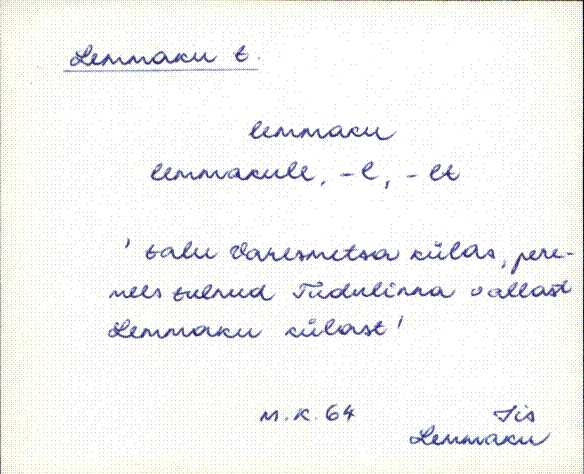 Lemmaku t.
lemmaku
lemmakule, -l, -lt
' talu Varesmetsa külas, pere-
mees tulnud Tudulinna vallast
Lemmaku külast '
M.K. 64 Iis
Lemmaku